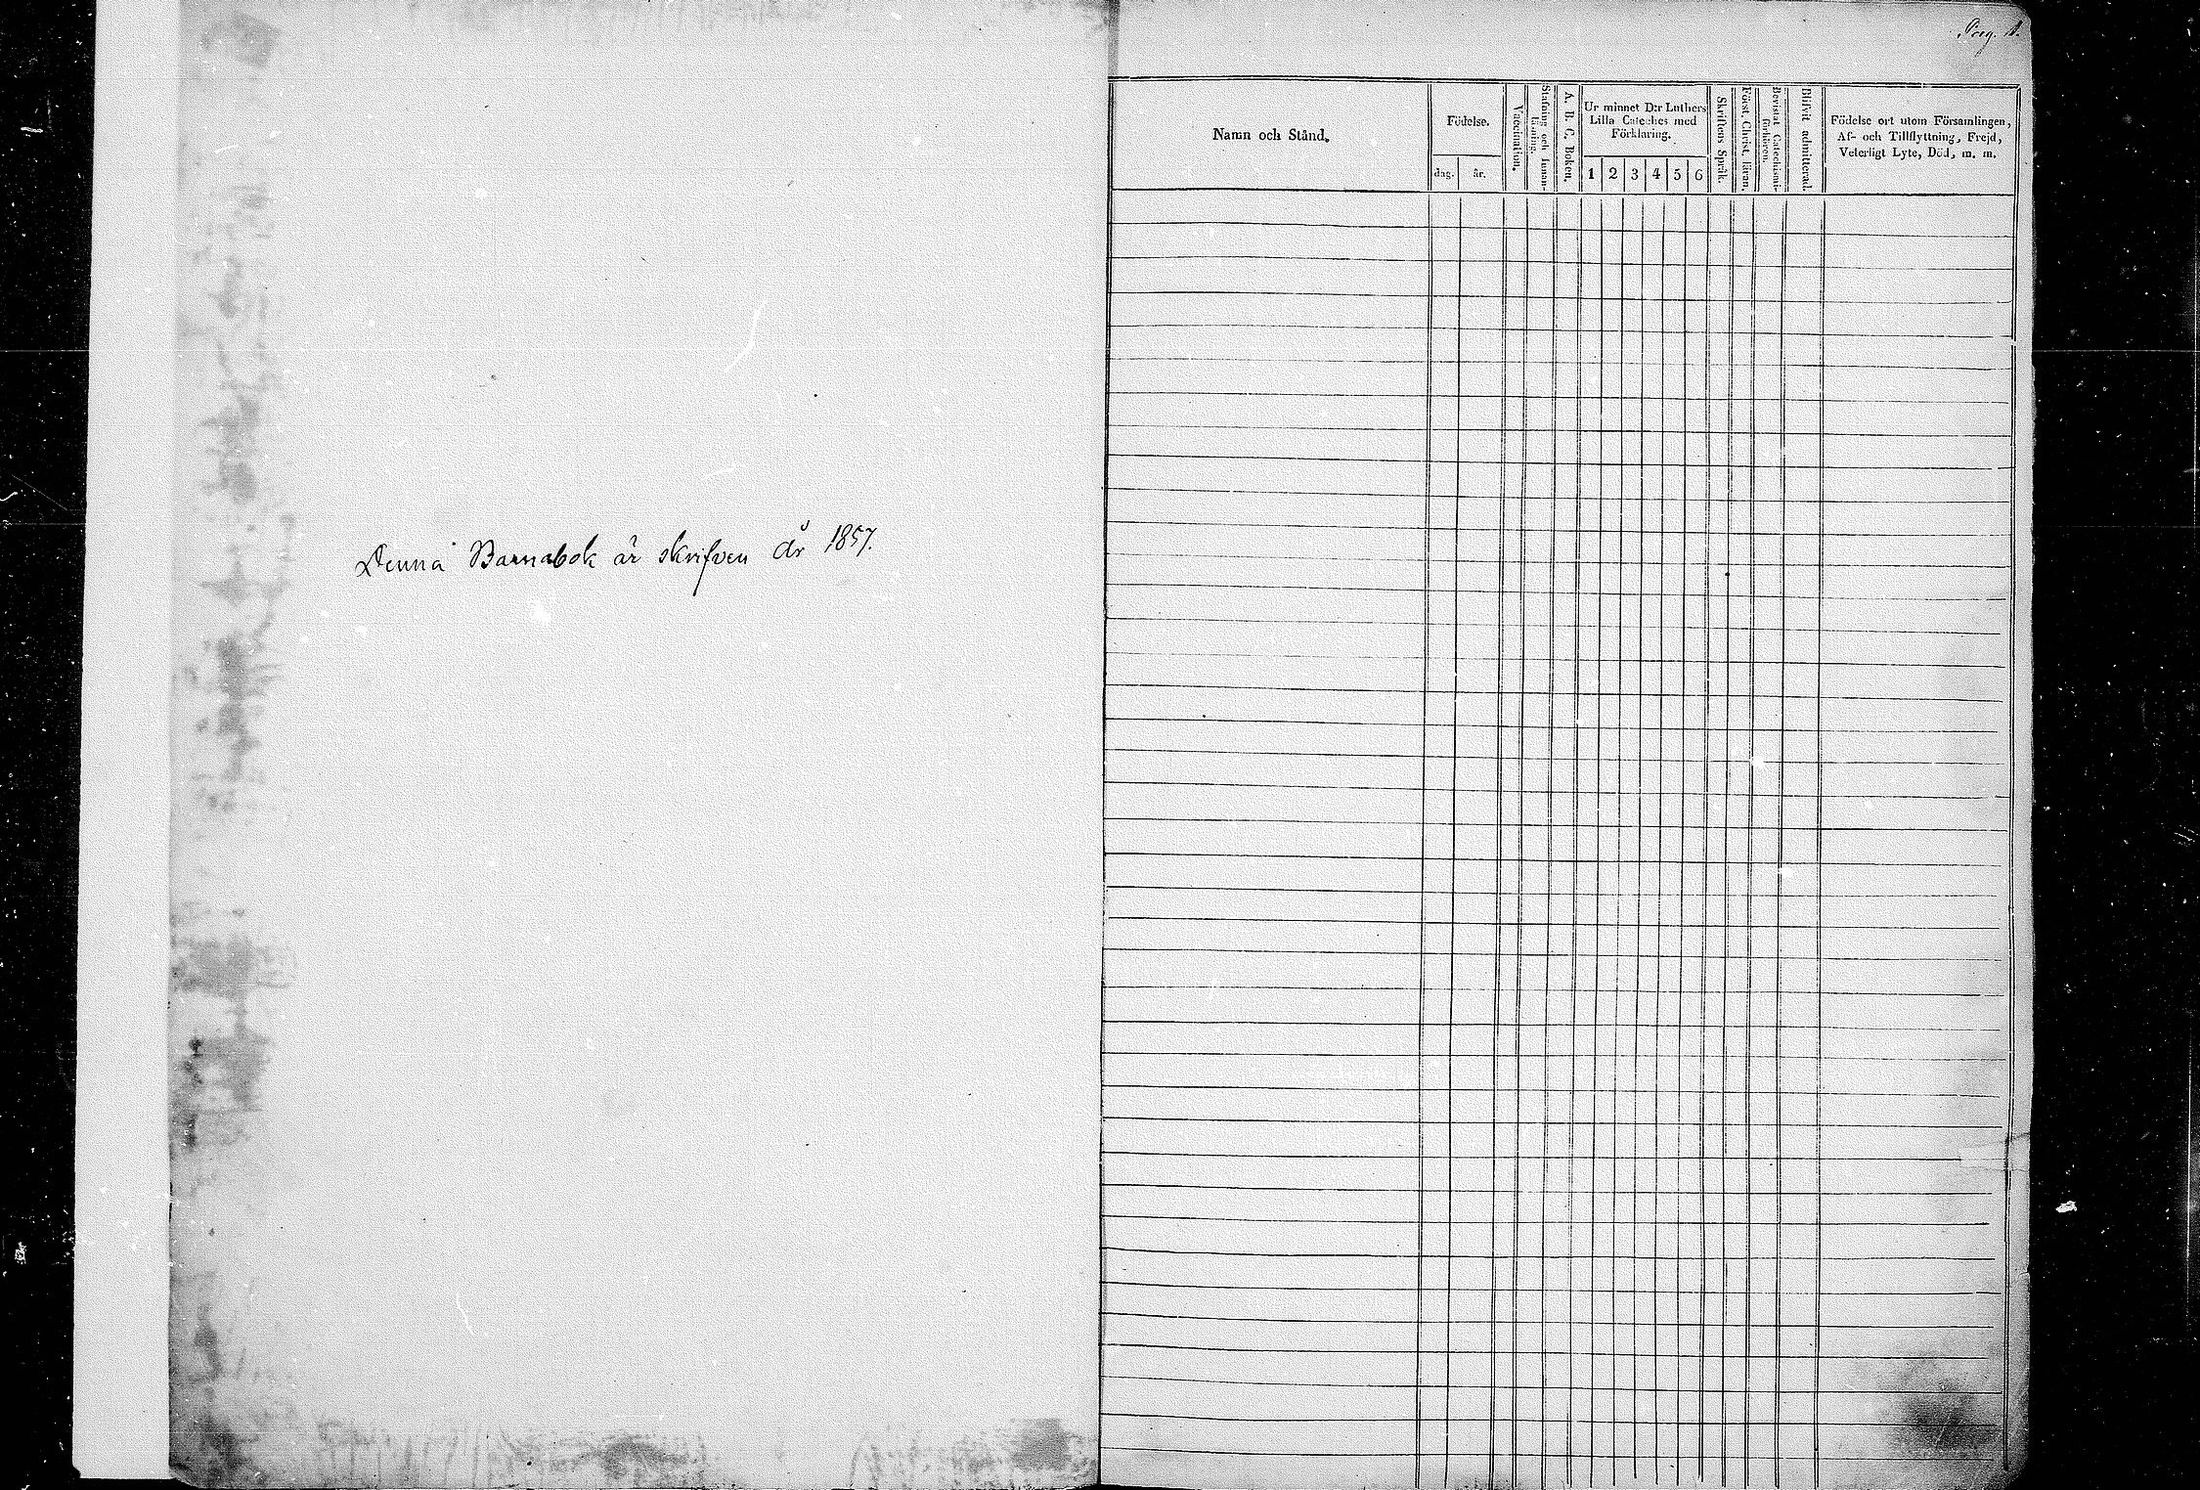 Denna Barnabok är skrifven år 1857.
Pag. 1.
Namn och Stånd.
Födelse.
dag.
år.
Vaccination.
Stafning och Innan-
läsning.
A. B. C. Boken.
Ur minnet D:r Luthers
Lilla Cateches med
Förklaring.
1 2 3 4 5 6
Skriftens Språk.
Först. Christ. läran.
Bevistat Catechismi-
förhören.
Blifvit admitterad.
Födelse ort utom Församlingen,
Af- och Tillflyttning, Frejd,
Veterligt Lyte, Död, m. m.